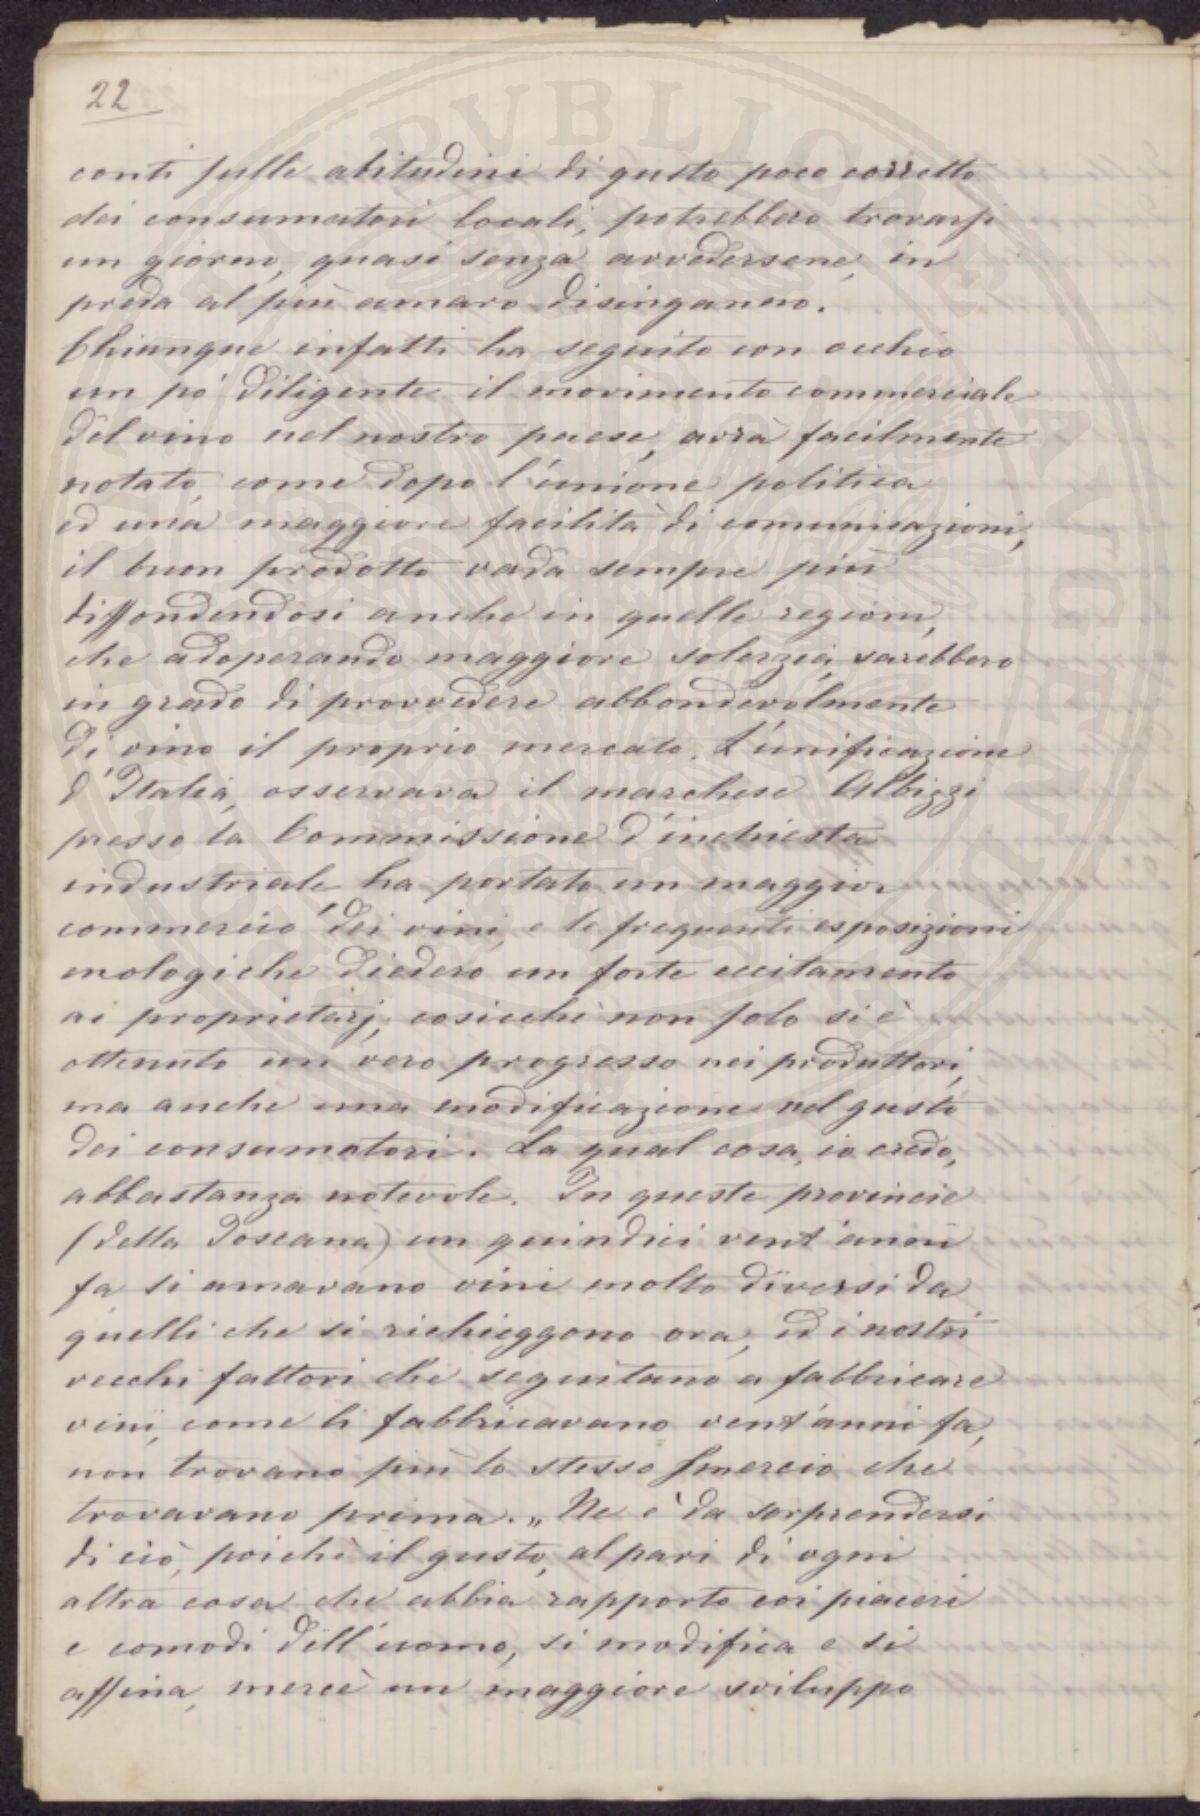 22
conti sulle abitudini di gusto poco corretto
dei consumatori locali, potrebbero trovarsi
un giorno, quasi senza avvedersene, in
preda al più amaro disinganno.
Chiunque infatti ha seguito con occhio
un pó diligente il movimento commerciale
del vino nel nostro paese, avrà facilmente
notato, come dopo l'unione politica
ed una maggiore facilità di comunicazioni,
il buon prodotto vada sempre più
diffondendosi anche in quelle regioni,
che adoperando maggiore solerzia, sarebbero
in grado di provvedere abbondevolmente
di vino il proprio mercato. L'unificazione
d'Italia, osservava il marchese Albizzi
presso la Commissione d'inchiesta
industriale ha portato un maggior
commercio dei vini, e le frequenti esposizioni
enologiche diedero un forte eccitamento
ai proprietarj, cosicchè non solo si è
ottenuto un vero progresso nei produttori,
ma anche una modificazione nel gusto
dei consumatori. La qual cosa, io credo,
abbastanza notevole. In queste provincie
(della Toscana) un quindici vent'anni
fa si amavano vini molto diversi da
quelli che si richieggono ora, ed i nostri
vecchi fattori che seguitano a fabbricare
vini, come li fabbricavano vent'anni fa,
non trovano più lo stesso smercio che
trovavano prima. „ Ne è da sorprendersi
di ciò, poichè il gusto, al pari di ogni
altra cosa che abbia rapporto coi piaceri
e comodi dell'uomo, si modifica e si
affina, mercè un maggiore sviluppo